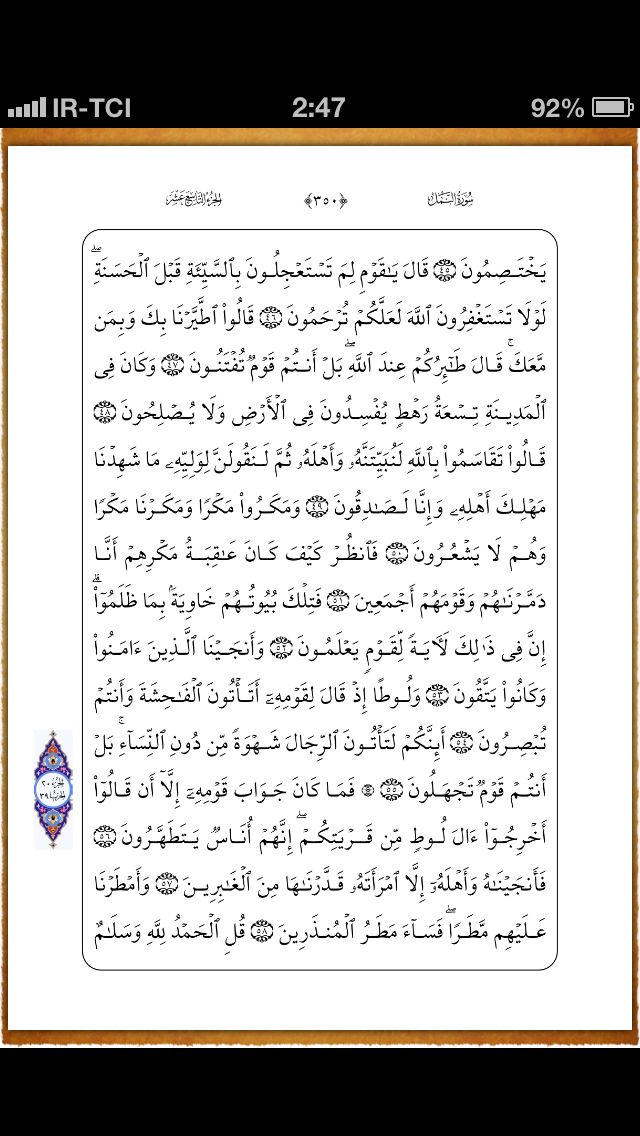 IR-TCI 2:47 92%
سُورَةُ النَّمْلِ ﴿٣٥٠﴾ الجُزْءُ التَّاسِعَ عَشَرَ
يَخْتَصِمُونَ ٤٥ قَالَ يَٰقَوْمِ لِمَ تَسْتَعْجِلُونَ بِٱلسَّيِّئَةِ قَبْلَ ٱلْحَسَنَةِۖ
لَوْلَا تَسْتَغْفِرُونَ ٱللَّهَ لَعَلَّكُمْ تُرْحَمُونَ ٤٦ قَالُوا۟ ٱطَّيَّرْنَا بِكَ وَبِمَن
مَّعَكَۚ قَالَ طَٰٓئِرُكُمْ عِندَ ٱللَّهِۖ بَلْ أَنتُمْ قَوْمٌ تُفْتَنُونَ ٤٧ وَكَانَ فِى
ٱلْمَدِينَةِ تِسْعَةُ رَهْطٍ يُفْسِدُونَ فِى ٱلْأَرْضِ وَلَا يُصْلِحُونَ ٤٨
قَالُوا۟ تَقَاسَمُوا۟ بِٱللَّهِ لَنُبَيِّتَنَّهُۥ وَأَهْلَهُۥ ثُمَّ لَنَقُولَنَّ لِوَلِيِّهِۦ مَا شَهِدْنَا
مَهْلِكَ أَهْلِهِۦ وَإِنَّا لَصَٰدِقُونَ ٤٩ وَمَكَرُوا۟ مَكْرًا وَمَكَرْنَا مَكْرًا
وَهُمْ لَا يَشْعُرُونَ ٥٠ فَٱنظُرْ كَيْفَ كَانَ عَٰقِبَةُ مَكْرِهِمْ أَنَّا
دَمَّرْنَٰهُمْ وَقَوْمَهُمْ أَجْمَعِينَ ٥١ فَتِلْكَ بُيُوتُهُمْ خَاوِيَةًۢ بِمَا ظَلَمُوٓا۟ۗ
إِنَّ فِى ذَٰلِكَ لَءَايَةً لِّقَوْمٍ يَعْلَمُونَ ٥٢ وَأَنجَيْنَا ٱلَّذِينَ ءَامَنُوا۟
وَكَانُوا۟ يَتَّقُونَ ٥٣ وَلُوطًا إِذْ قَالَ لِقَوْمِهِۦٓ أَتَأْتُونَ ٱلْفَٰحِشَةَ وَأَنتُمْ
تُبْصِرُونَ ٥٤ أَئِنَّكُمْ لَتَأْتُونَ ٱلرِّجَالَ شَهْوَةً مِّن دُونِ ٱلنِّسَآءِۚ بَلْ
أَنتُمْ قَوْمٌ تَجْهَلُونَ ٥٥ فَمَا كَانَ جَوَابَ قَوْمِهِۦٓ إِلَّآ أَن قَالُوٓا۟
أَخْرِجُوٓا۟ ءَالَ لُوطٍ مِّن قَرْيَتِكُمْۖ إِنَّهُمْ أُنَاسٌ يَتَطَهَّرُونَ ٥٦
فَأَنجَيْنَٰهُ وَأَهْلَهُۥٓ إِلَّا ٱمْرَأَتَهُۥ قَدَّرْنَٰهَا مِنَ ٱلْغَٰبِرِينَ ٥٧ وَأَمْطَرْنَا
عَلَيْهِم مَّطَرًاۖ فَسَآءَ مَطَرُ ٱلْمُنذَرِينَ ٥٨ قُلِ ٱلْحَمْدُ لِلَّهِ وَسَلَٰمٌ
الجزء ٢٠
الحزب ٣٩